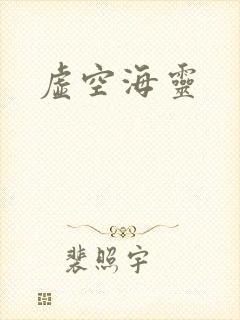 虛空海靈
裴照宇